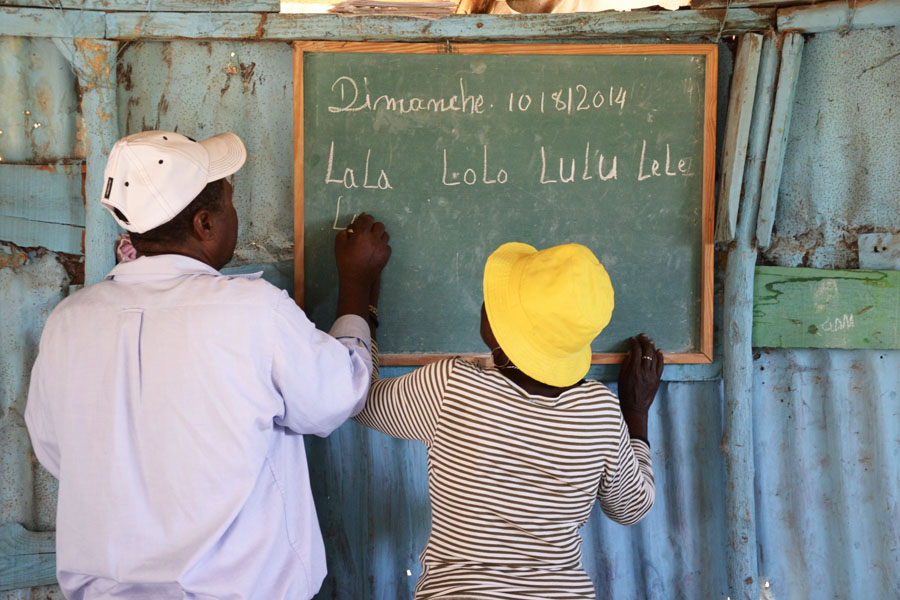 Dimanche. 10/8/2014
LaLa LoLo LuLu LeLe
L